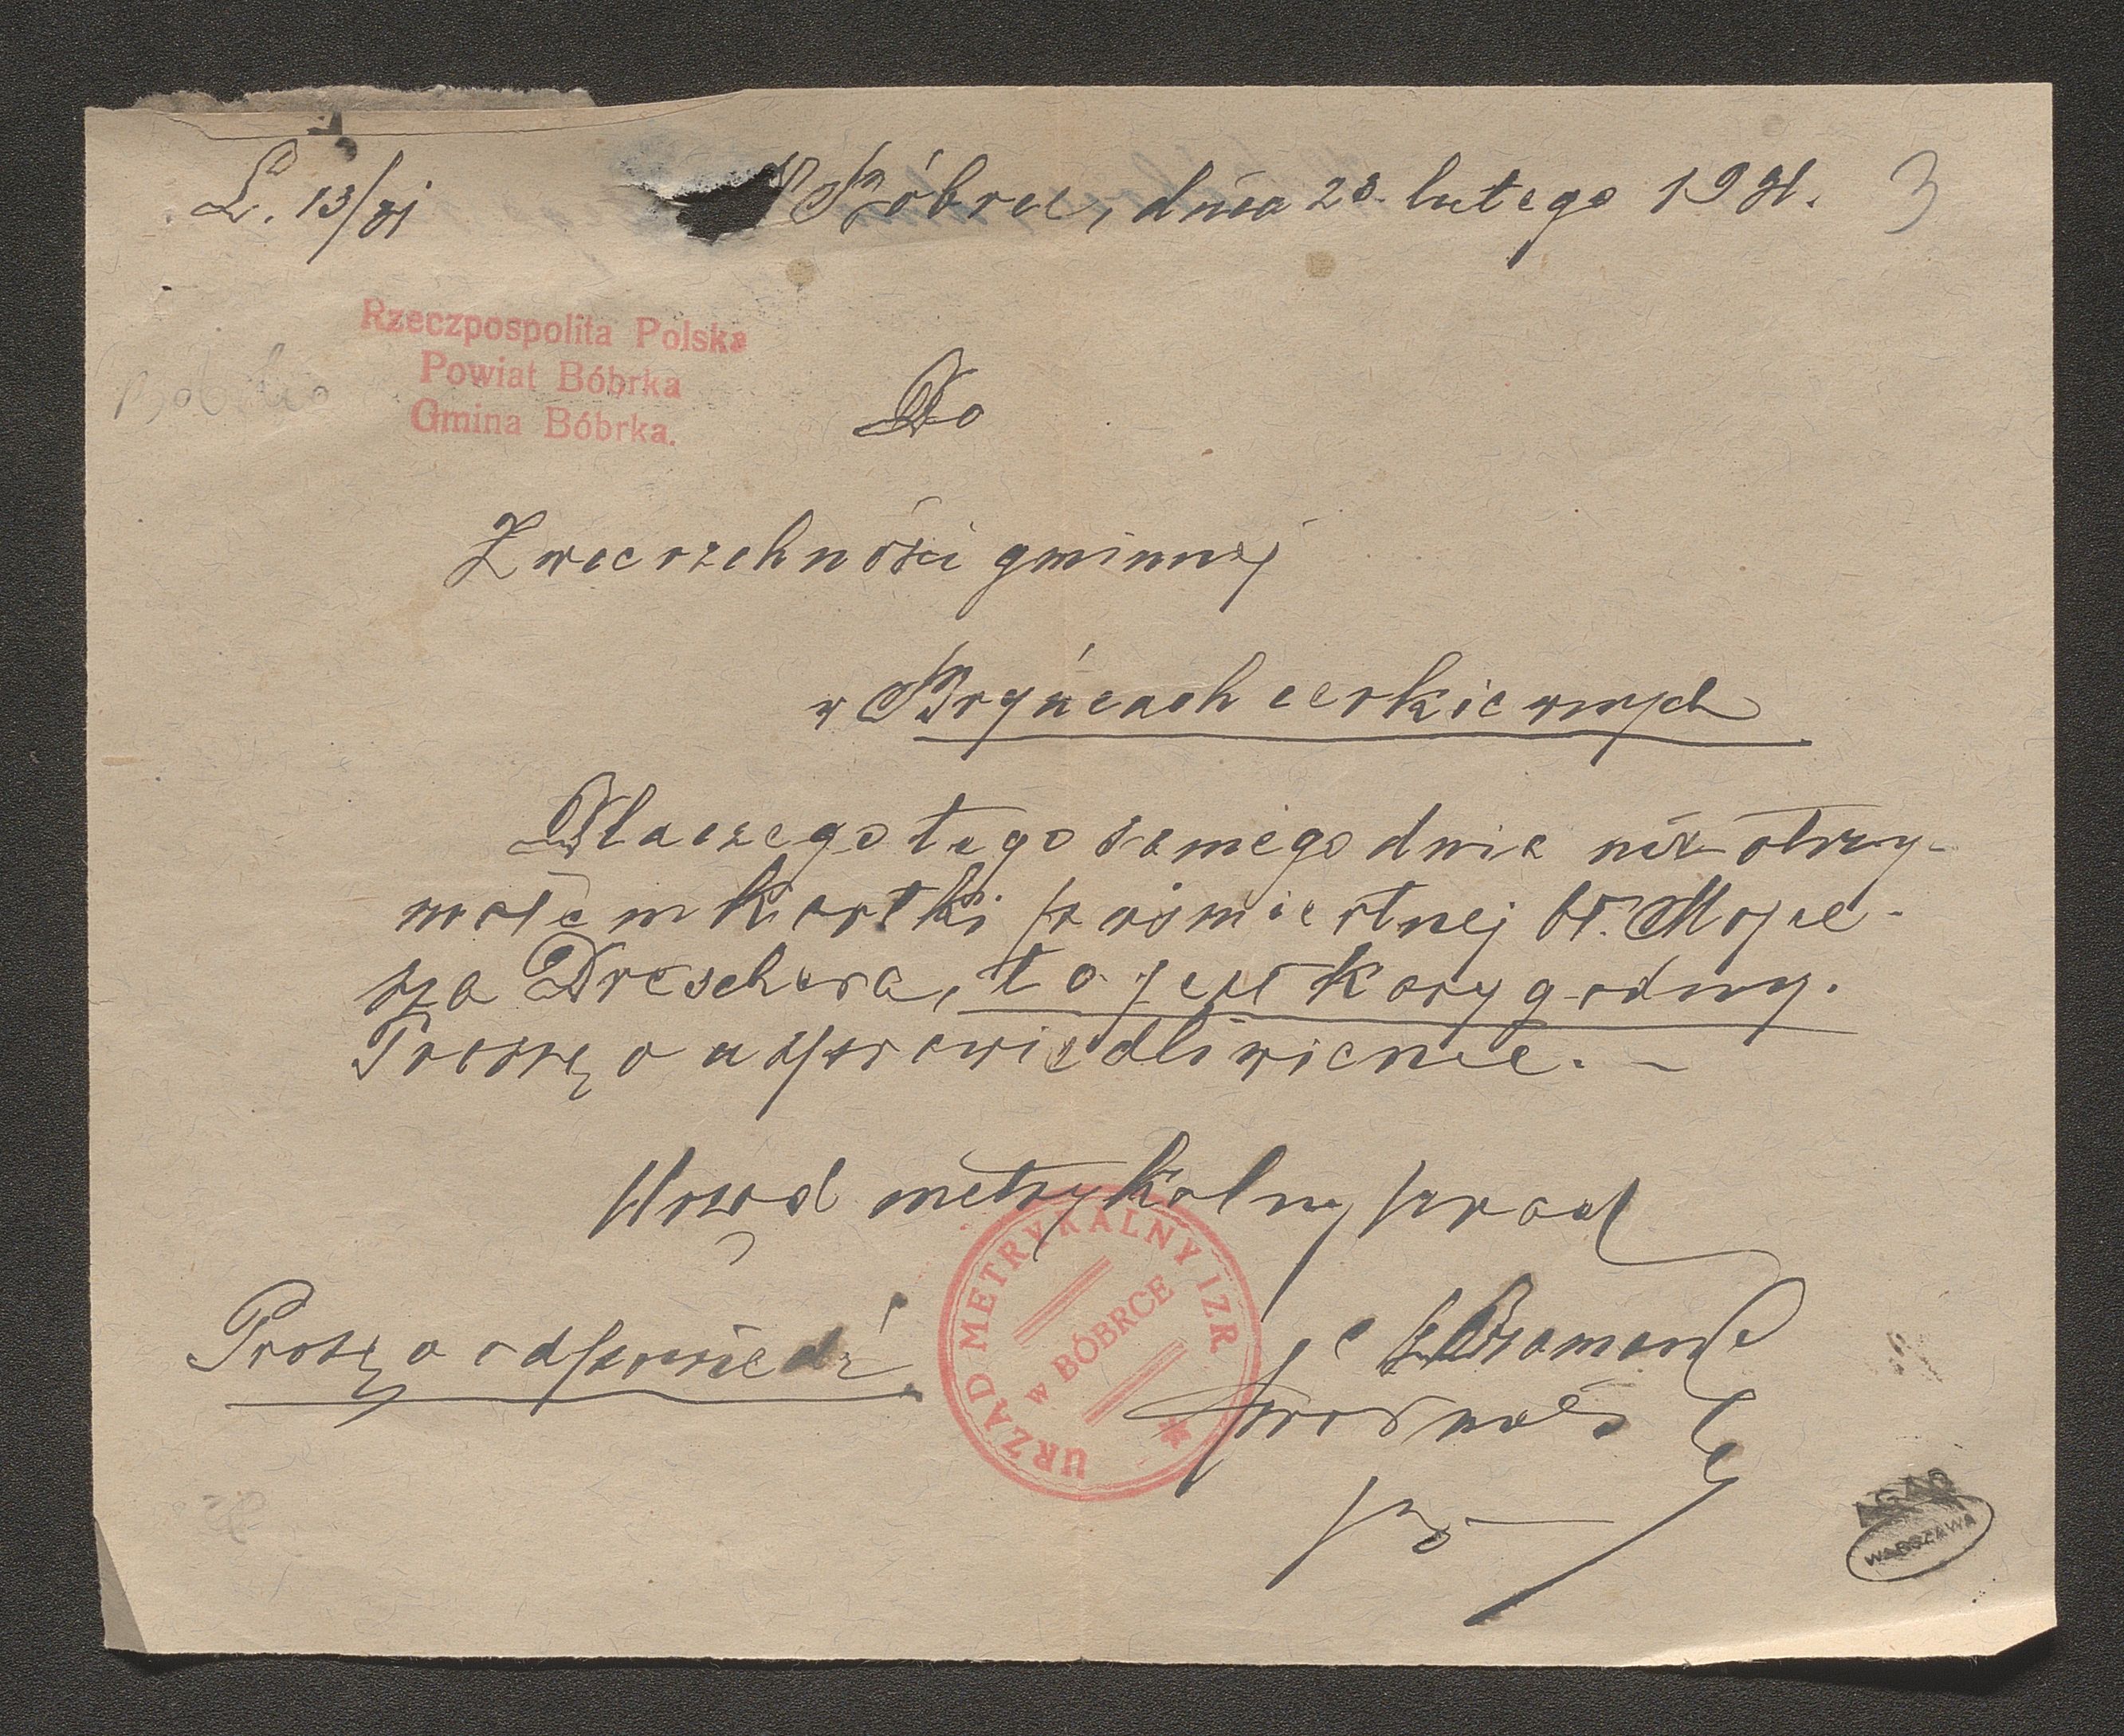 L. 13/31
W Bóbrce, dnia 23. lutego 1931.
3
Rzeczpospolita Polska
Powiat Bóbrka
Gmina Bóbrka.
Do
Zwierzchności gminnej
w Bryńcach cerkiewnych
Dlaczego tego samego dnia nie otrzy-
małem kartki pośmiertnej bł. Mojże-
sza Dreschera, to jest karygodny.
Proszę o usprawiedliwienie. –
Urząd metrykalny izrael
URZĄD METRYKALNY IZR.
w BÓBRCE
Proszę o odpowiedź
AGAD
WARSZAWA